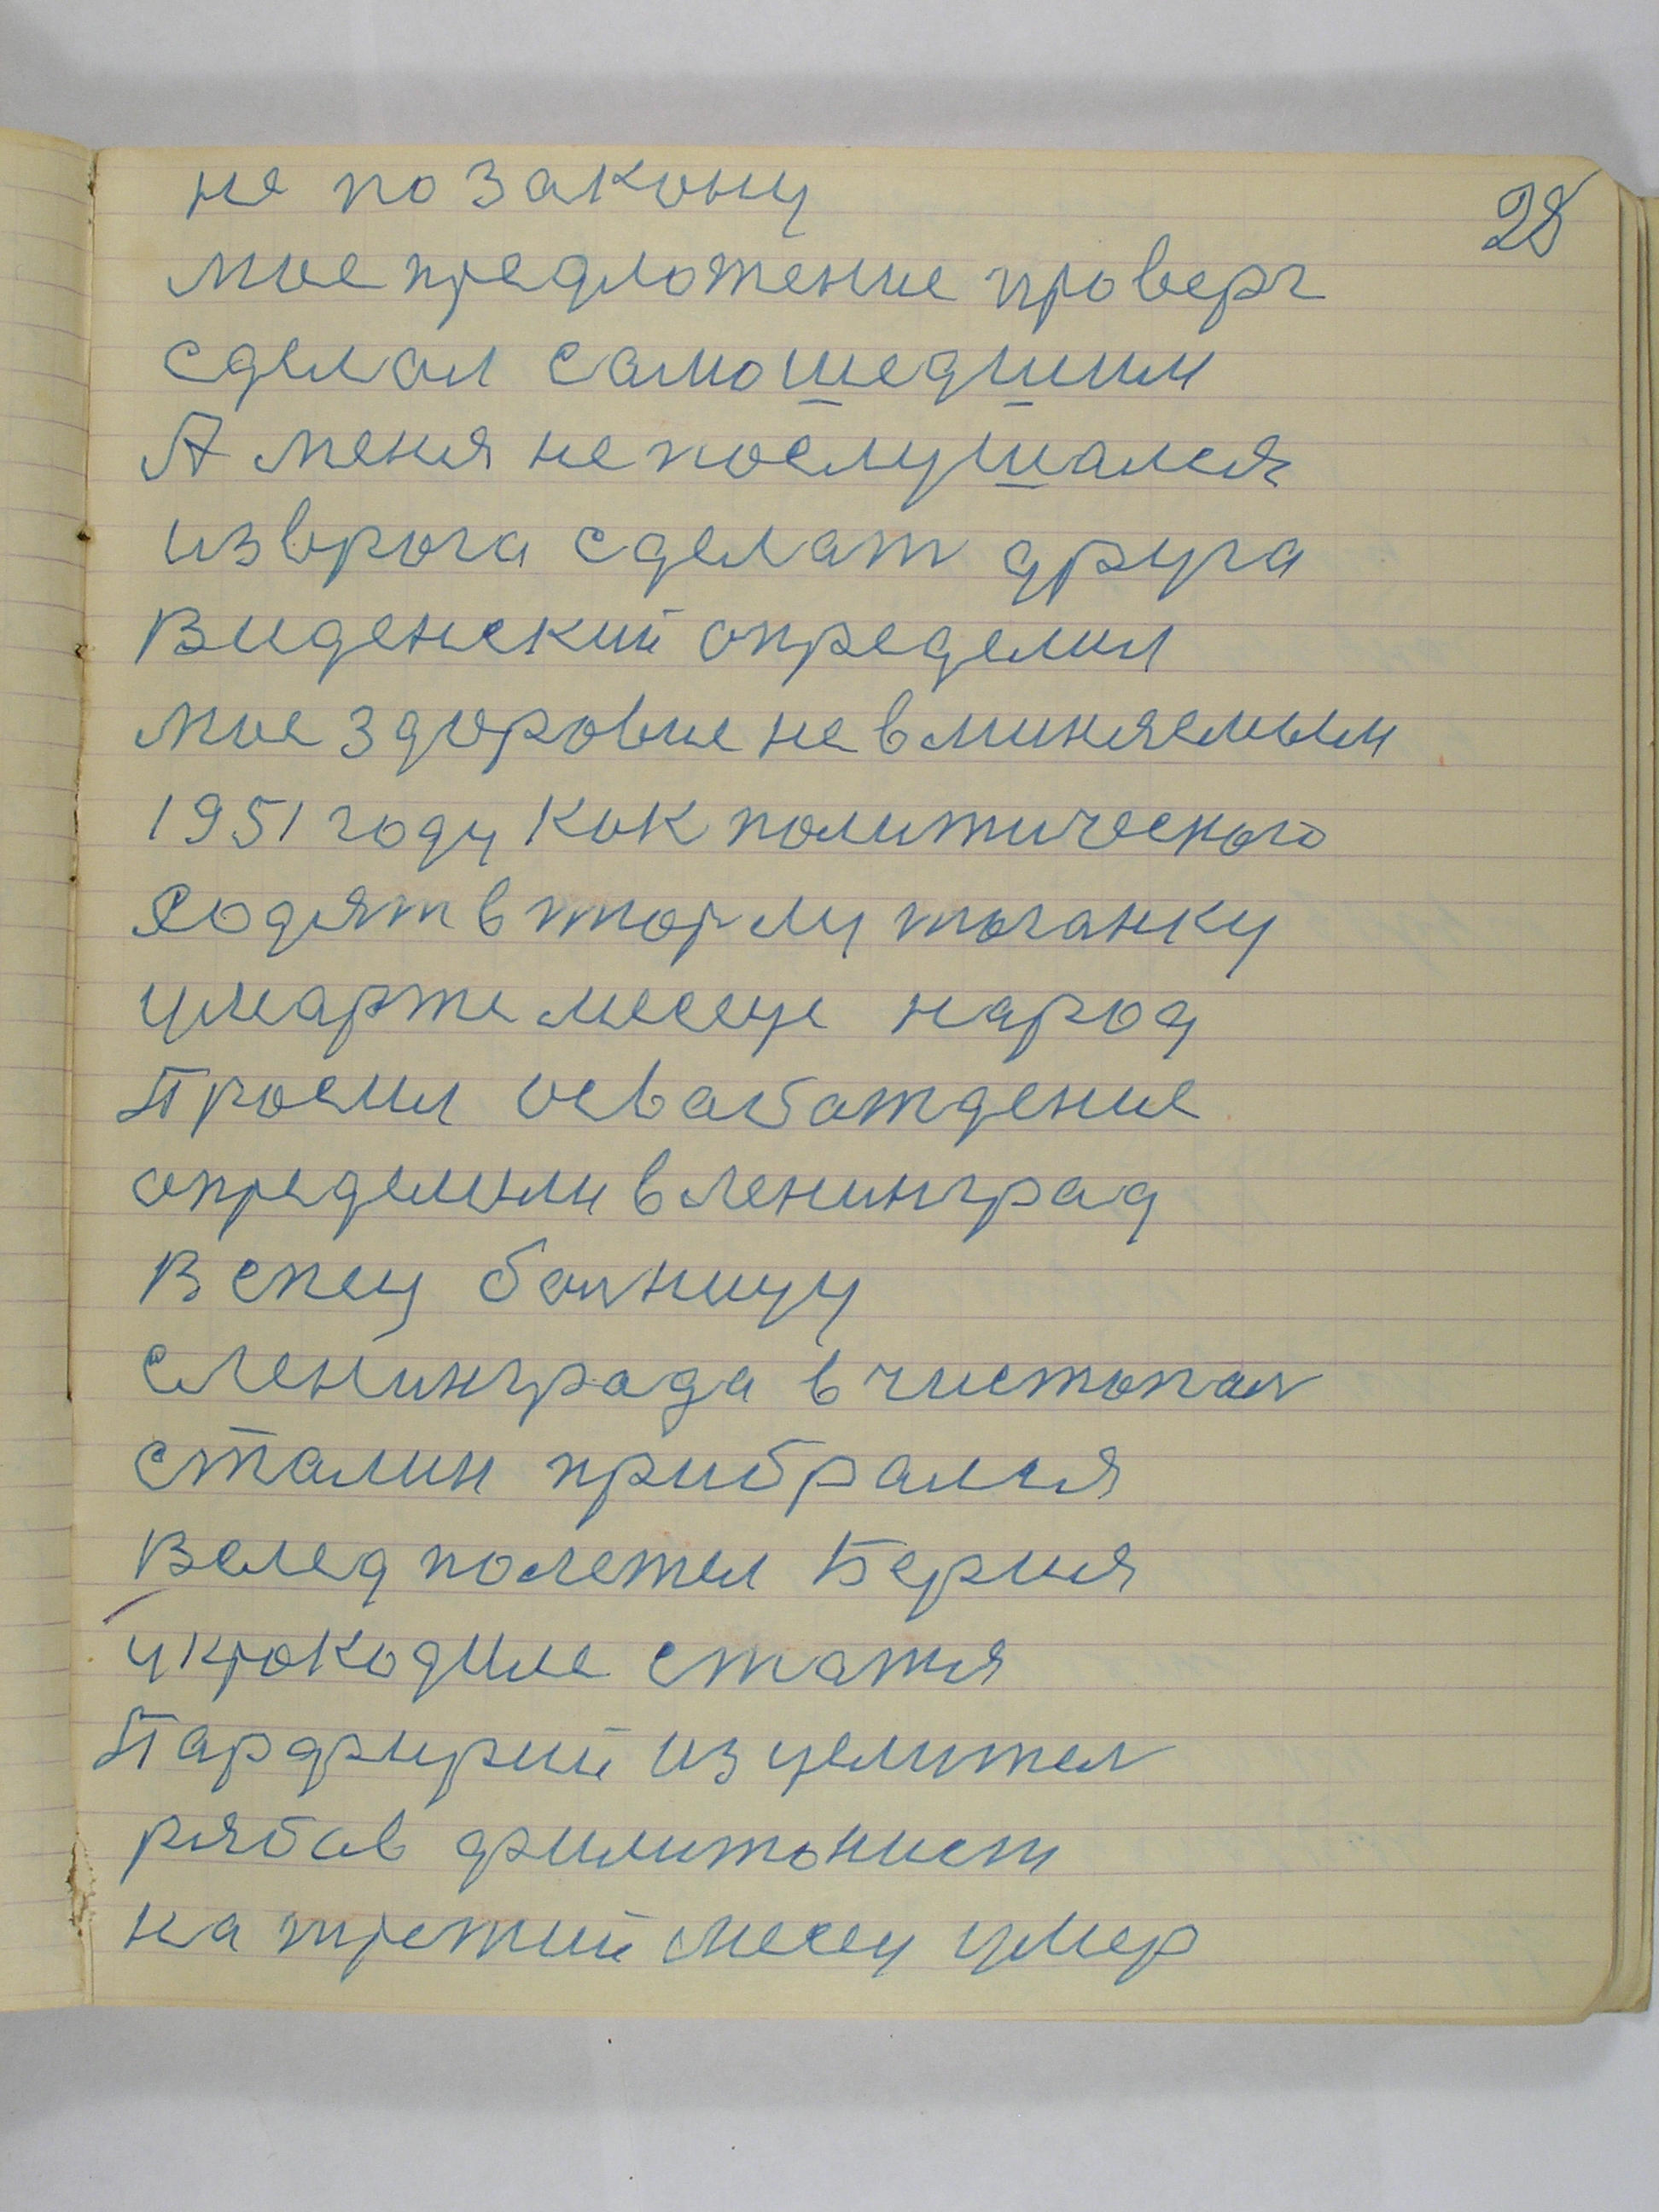 28
не по закону
мое предложение проверг
сделал самошедшим
А меня не послушался
из врога сделат друга
Виденский определил
мое здоровие не вминяемым
1951 году как политического
Содят в тюрму таганку
у марте месеце народ
Просил освабаждение
определили в ленинград
В спец болницу
с ленинграда в чистопал
сталин прибрался
Вслед полетел Берия
у крокодиле статия
Парфирий изцелител
рябов филитонист
на третий месец умер